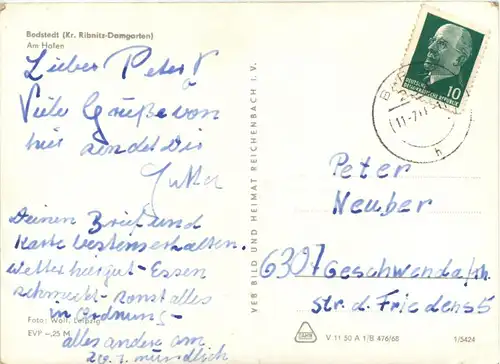 Bodstedt (Kr. Ribnitz-Damgarten)
Am Hafen
Lieber Peter!
Viele Grüße von
hier sendet Dir
Jutta
Deinen Brief und
Karte bestens erhalten.
Wetter hier gut - Essen
schmeckt - sonst alles
in Ordnung -
alles andere am
mündlich
Foto: Wolf, Leipzig
EVP -,25 M
VEB BILD UND HEIMAT REICHENBACH I. V.
10
DEUTSCHE
DEMOKRATISCHE REPUBLIK
Peter
Neuber
6307 Geschwenda/Th.
Str. d. Friedens 5
V 11 50 A 1/B 476/68
1/5424